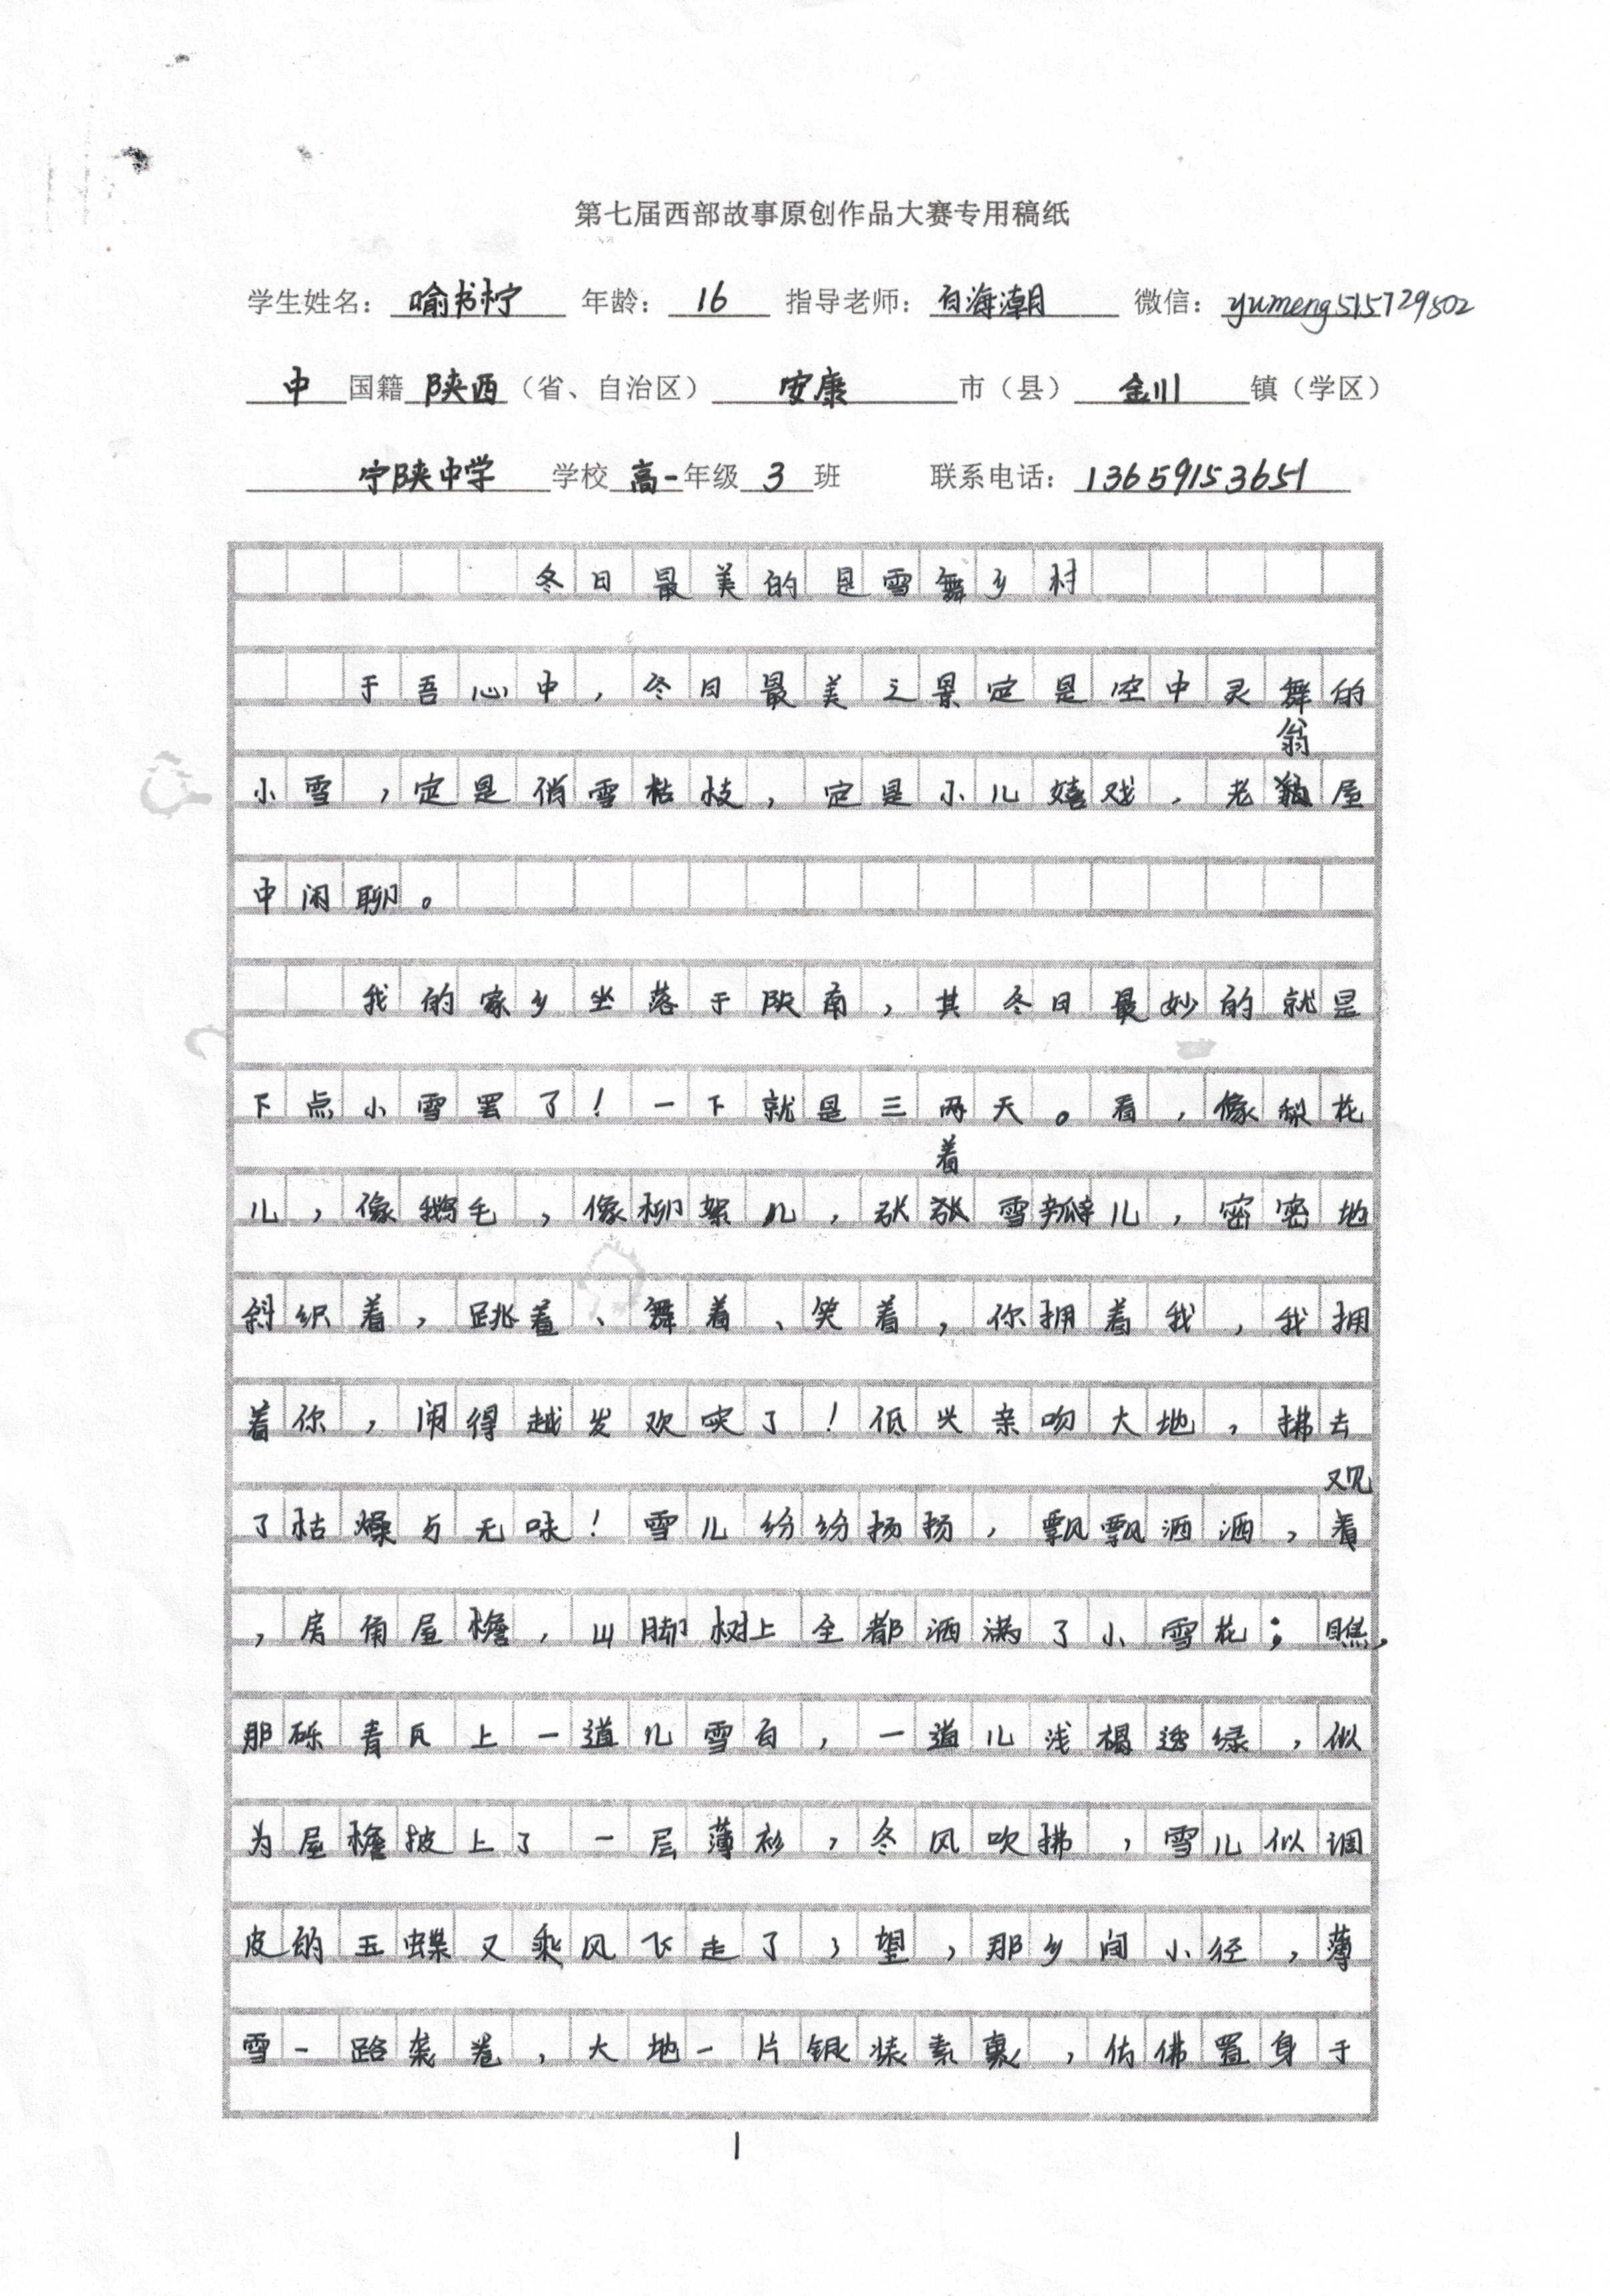 第七届西部故事原创作品大赛专用稿纸
学生姓名：喻书柠 年龄：16 指导老师：白海潮 微信：yumeng515729502
中国籍 陕西（省、自治区） 安康 市（县） 金川 镇（学区）
宁陕中学 学校 高一年级 3 班 联系电话：13659153651
冬日最美的是雪舞乡村
于吾心中，冬日最美之景定是空中灵舞的
小雪，定是俏雪枯枝，定是小儿嬉戏，老翁屋
中闲聊。
我的家乡坐落于陕南，其冬日最妙的就是
下点小雪罢了！一下就是三两天。看，像梨花
儿，像鹅毛，像柳絮儿，张张着雪瓣儿，密密地
斜织着，跳着、舞着、笑着，你拥着我，我拥
着你，闹得越发欢实了！低头亲吻大地，拂去
了枯燥与无味！雪儿纷纷扬扬，飘飘洒洒，观
，房角屋檐，山脚树上全都洒满了小雪花；瞧，
那砾青瓦上一道儿雪白，一道儿浅褐透绿，似
为屋檐披上了一层薄衫，冬风吹拂，雪儿似调
皮的玉蝶又乘风飞走了；望，那乡间小径，薄
雪一路袭卷，大地一片银装素裹，仿佛置身于
1